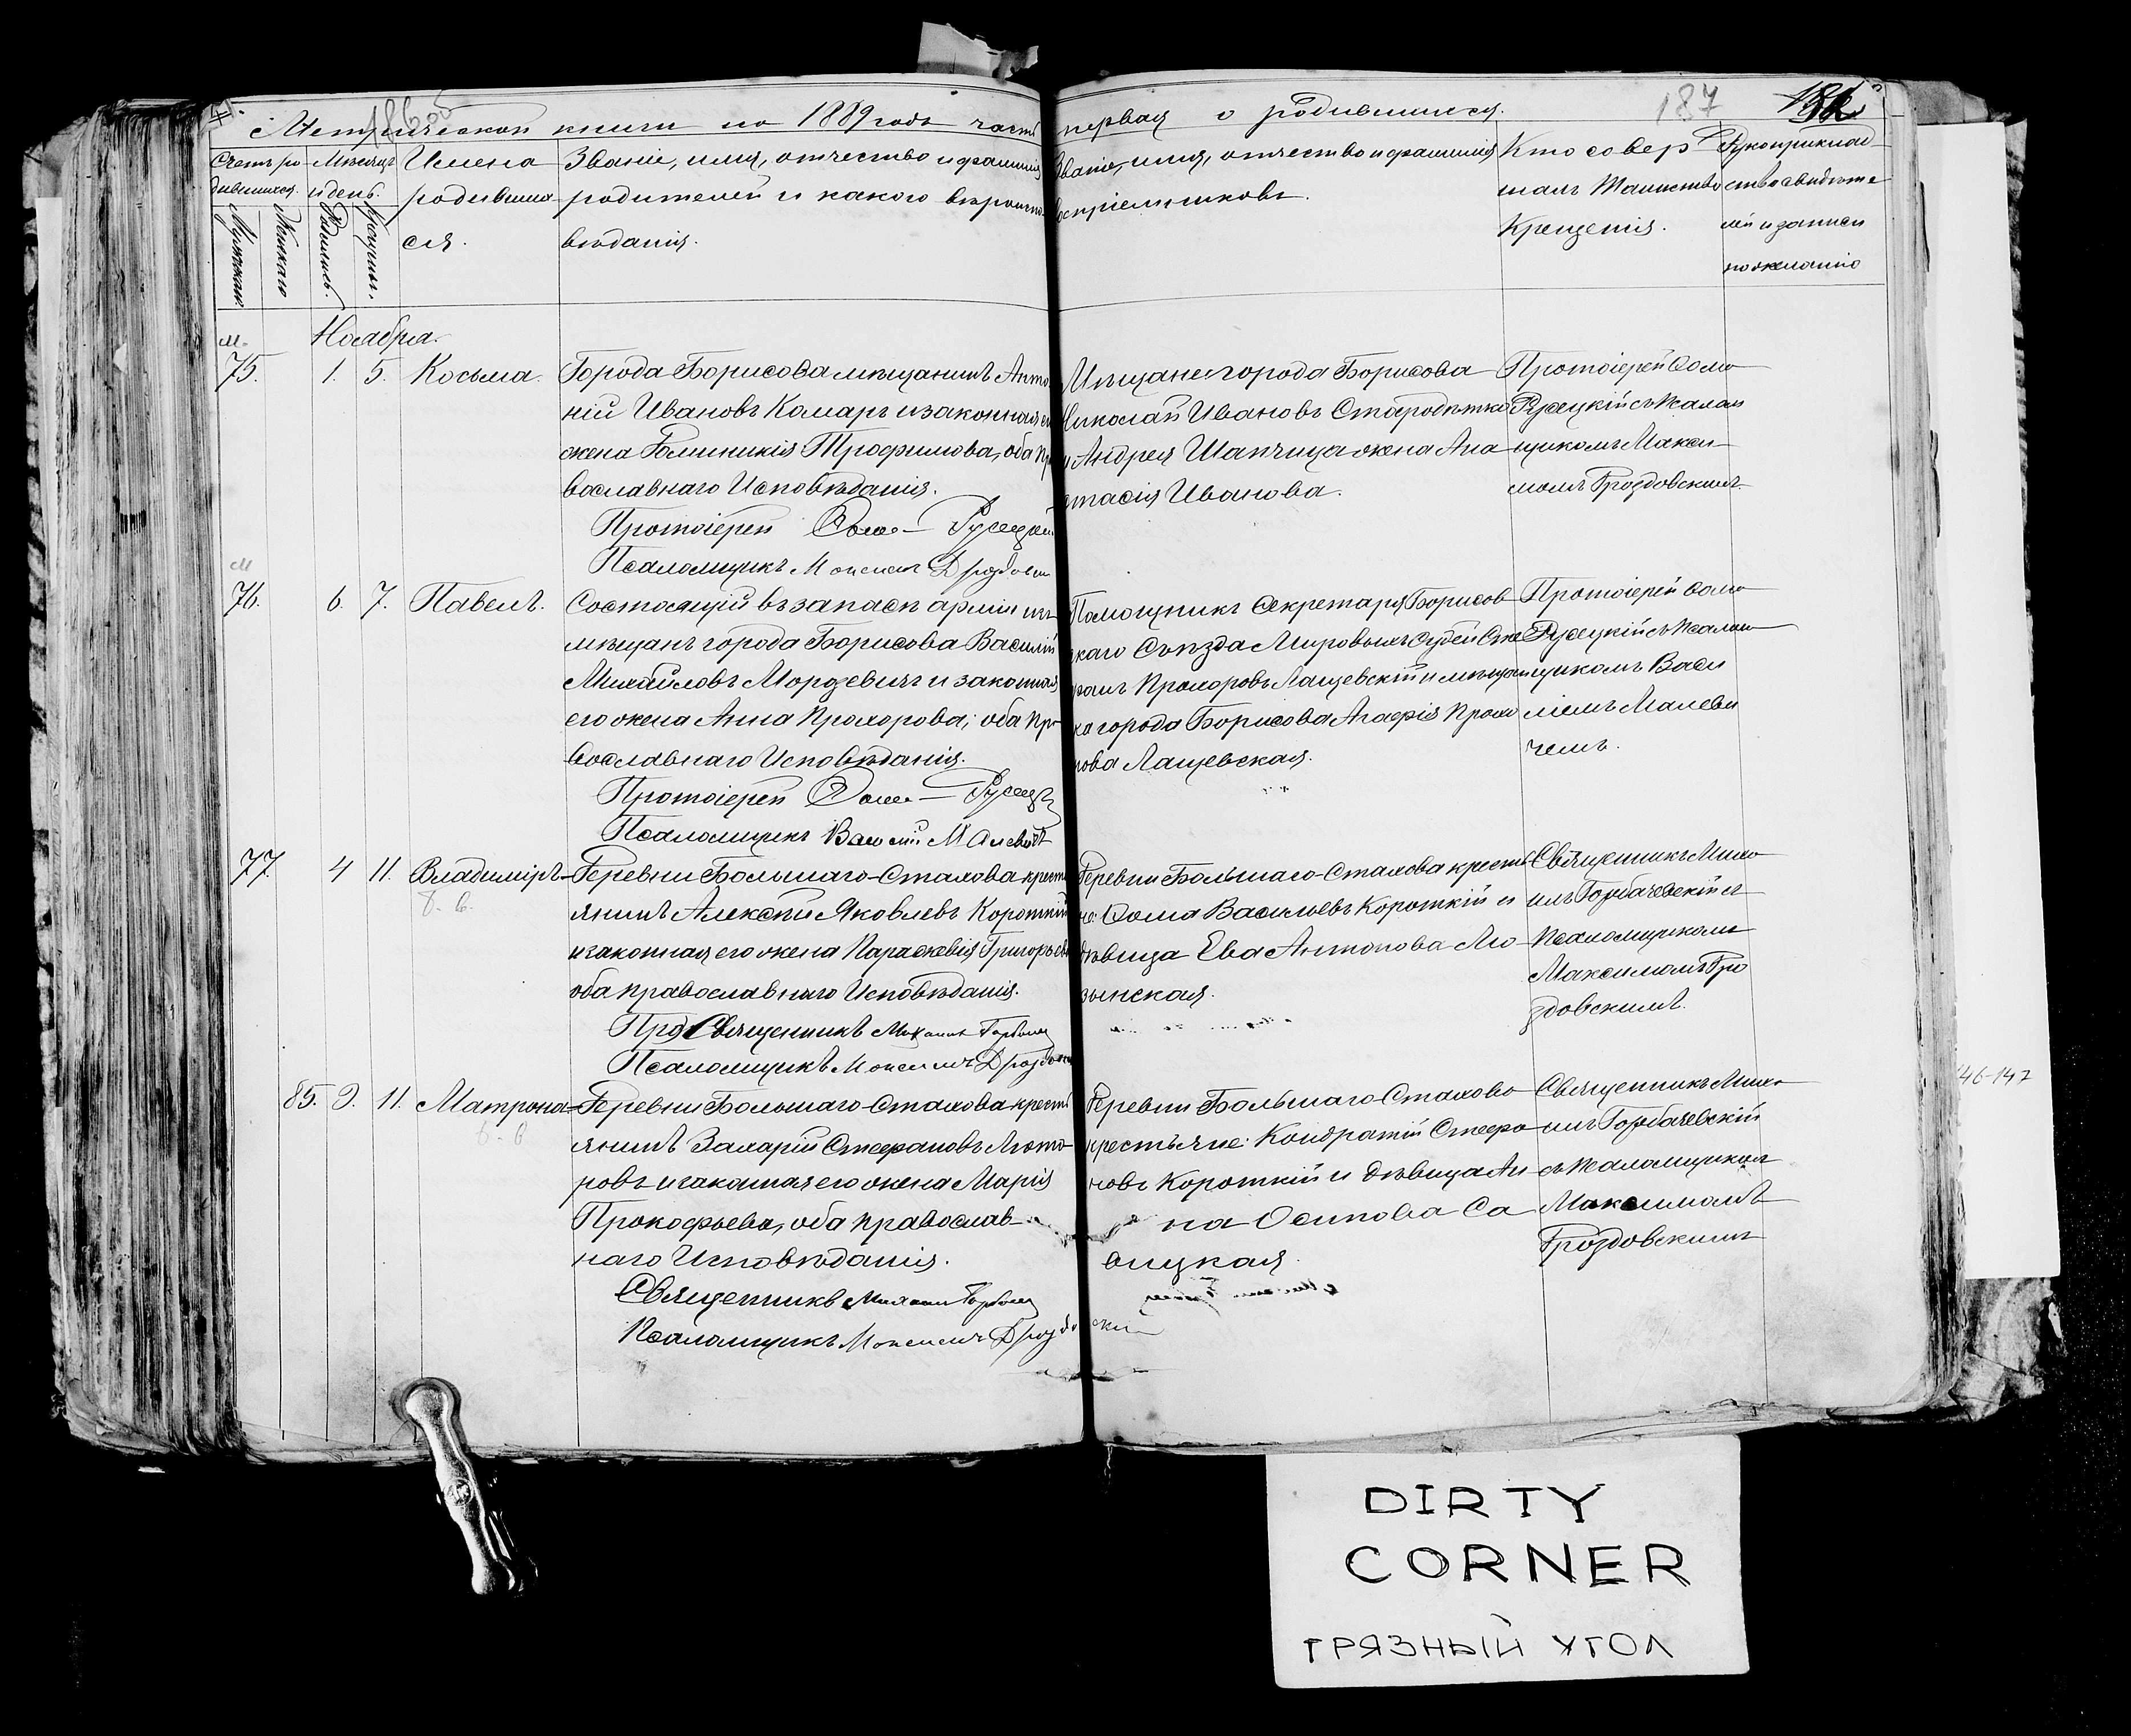 Метрической книги на 1889 годъ часть первая о родившихся.
187
Счетъ ро
дившихся.
Мѣсяцъ
и день.
Имена
родивших
ся.
Званіе, имя, отчество и фамилія
родителей и какого вѣроиспо
вѣданія.
Званіе, имя, отчество и фамилія
воспріемниковъ.
Кто совер
шалъ Таинство
Крещенія.
Рукоприклад
ство свидѣте
лей о записи
по желанію
Мужскаго.
Женскаго
Родились.
Крещены.
Ноября.
м.
75. 1. 5. Косьма.
Города Борисова мѣщанинъ Анто
ній Ивановъ Комаръ и законная его
жена Трофимова, оба пра
вославнаго Исповѣданія.
Протоіерей Русецкій
Псаломщикъ Максимъ Дроздовскій
Мѣщане города Борисова
Николай Ивановъ Стародѣтко
и Андрея Шапчица жена Ана
стасія Иванова.
Протоіерей Ѳома
Русецкій съ Псалом
щикомъ Макси
момъ Дроздовскимъ.
м
76. 6. 7. Павелъ.
Состоящій въ запасѣ арміи изъ
мѣщанъ города Борисова Василій
Михайловъ Морозевичъ и законная
его жена Анна Прохорова; оба пра
вославнаго Исповѣданія.
Протоіерей Русецкій
Псаломщикъ Василій Малевичъ
Помощникъ Секретаря Борисов
скаго Съѣзда Мировыхъ Судей Сте
фанъ Прохоровъ Лащевскій и мѣщан
ка города Борисова Агафія Прохо
рова Лащевская.
Протоіерей Ѳома
Русецкій съ Псалом
щикомъ Васи
ліемъ Малеви
чемъ.
77. 4 11. Владиміръ
Деревни Большаго-Стахова кресть
янинъ Алексѣй Яковлевъ Короткій
и законная его жена Параскевія Григорьева
оба православнаго Исповѣданія.
Священникъ Михаилъ
Псаломщикъ Максимъ Дроздовскій
Деревни Большаго-Стахова крестья
не: Ѳома Васильевъ Короткій и
дѣвица Ева Антонова Лю
зынская.
Священникъ Миха
илъ Горбачевскій съ
Псаломщикомъ
Максимомъ Дро
здовскимъ.
85. 9. 11. Матрона
Деревни Большаго-Стахова кресть
янинъ Захарій Стефановъ Люто
ровъ и законная его жена Марія
Прокофьева, оба православ
наго Исповѣданія.
Священникъ Михаилъ
Псаломщикъ Максимъ Дроздовскій
Деревни Большаго Стахова
крестьяне: Кондратій Стефа
новъ Короткій и дѣвица Ан
на Осипова Са
вицкая.
Священникъ Миха
илъ Горбачевскій
съ Псаломщикомъ
Максимомъ
Дроздовскимъ
146-147
DIRTY
CORNER
ГРЯЗНЫЙ УГОЛ